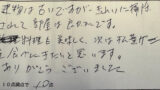 建物は古いですが、きれいに掃除
されて部屋は良かったです。
料理も美味しく、次は松葉ガ
を食べにきたいと思います。
ありがとうございました
10点満点で 10点